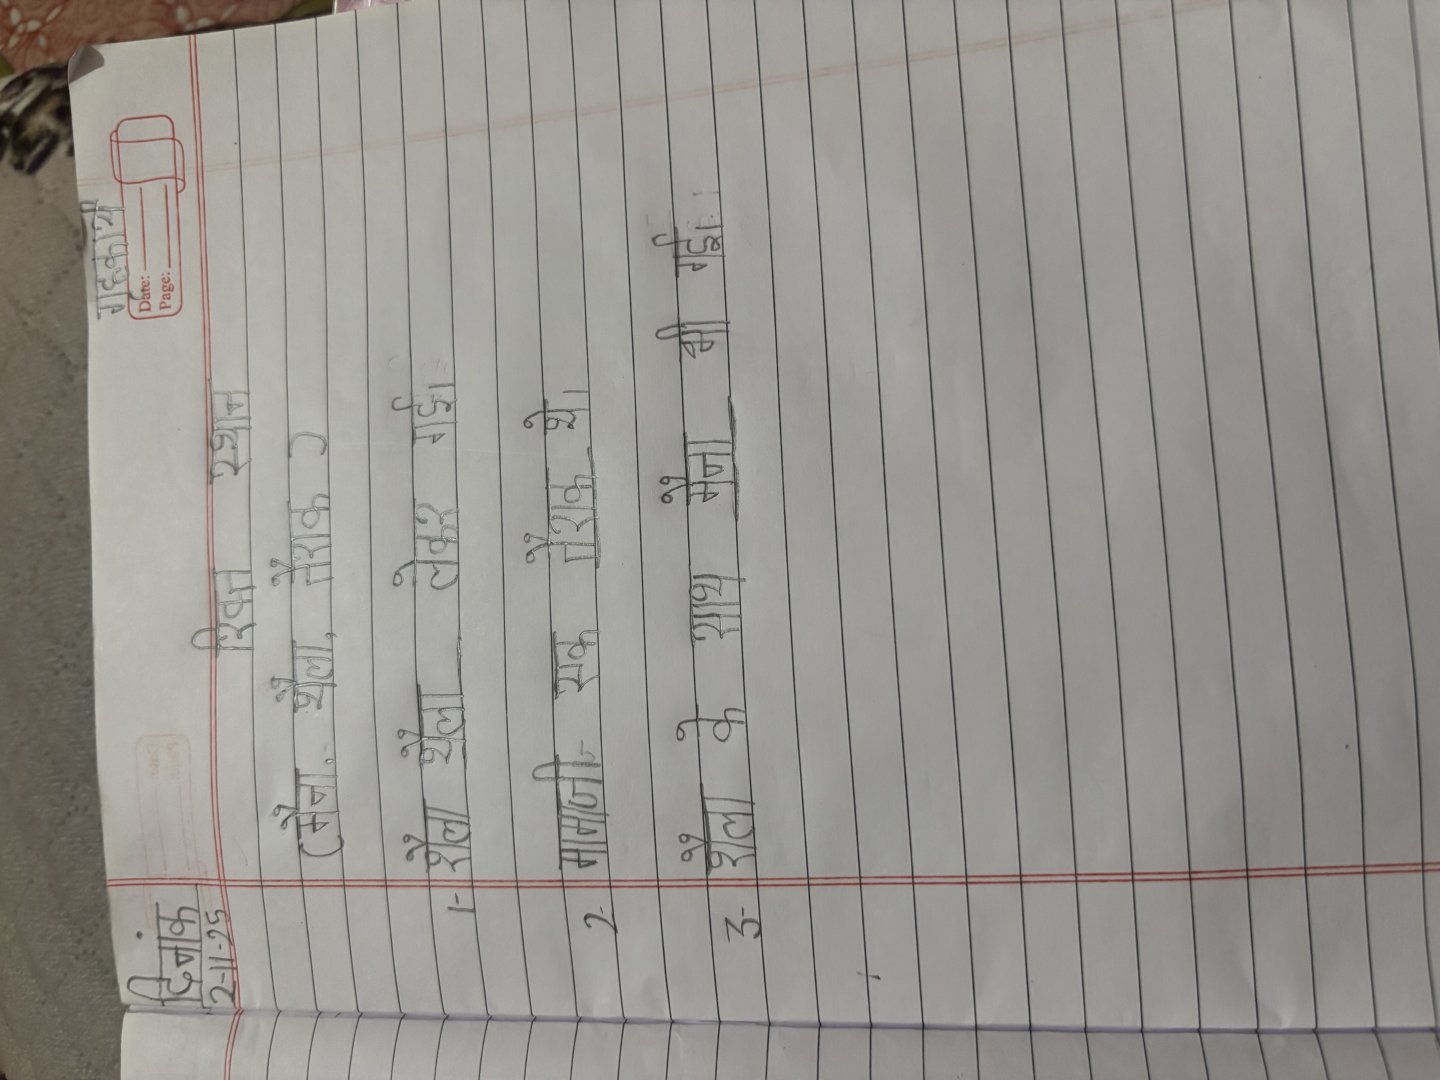 गृहकार्य
दिनांक
Date:
2-11-25
Page:
रिक्त स्थान
(मैना, थैला, तैराक)
1- शैला थैला लेकर गई।
2- मामाजी एक तैराक थे।
3- शैला के साथ मैना भी गई।